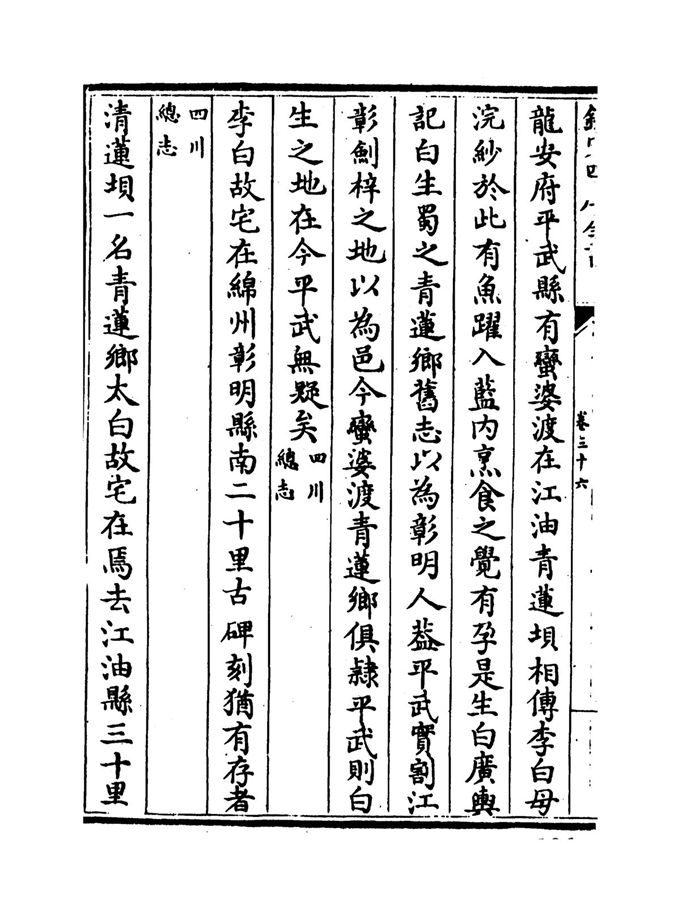 卷三十六
龍安府平武縣有蠻婆渡在江油青蓮垻相傳李白母
浣紗於此有魚躍入籃內烹食之覺有孕是生白廣輿
記白生蜀之青蓮鄉舊志以為彰明人葢平武實割江
彰劍梓之地以為邑今蠻婆渡青蓮鄉俱隸平武則白
生之地在今平武無疑矣四川總志
李白故宅在綿州彰明縣南二十里古碑刻猶有存者
四川總志
清蓮垻一名青蓮鄉太白故宅在焉去江油縣三十里